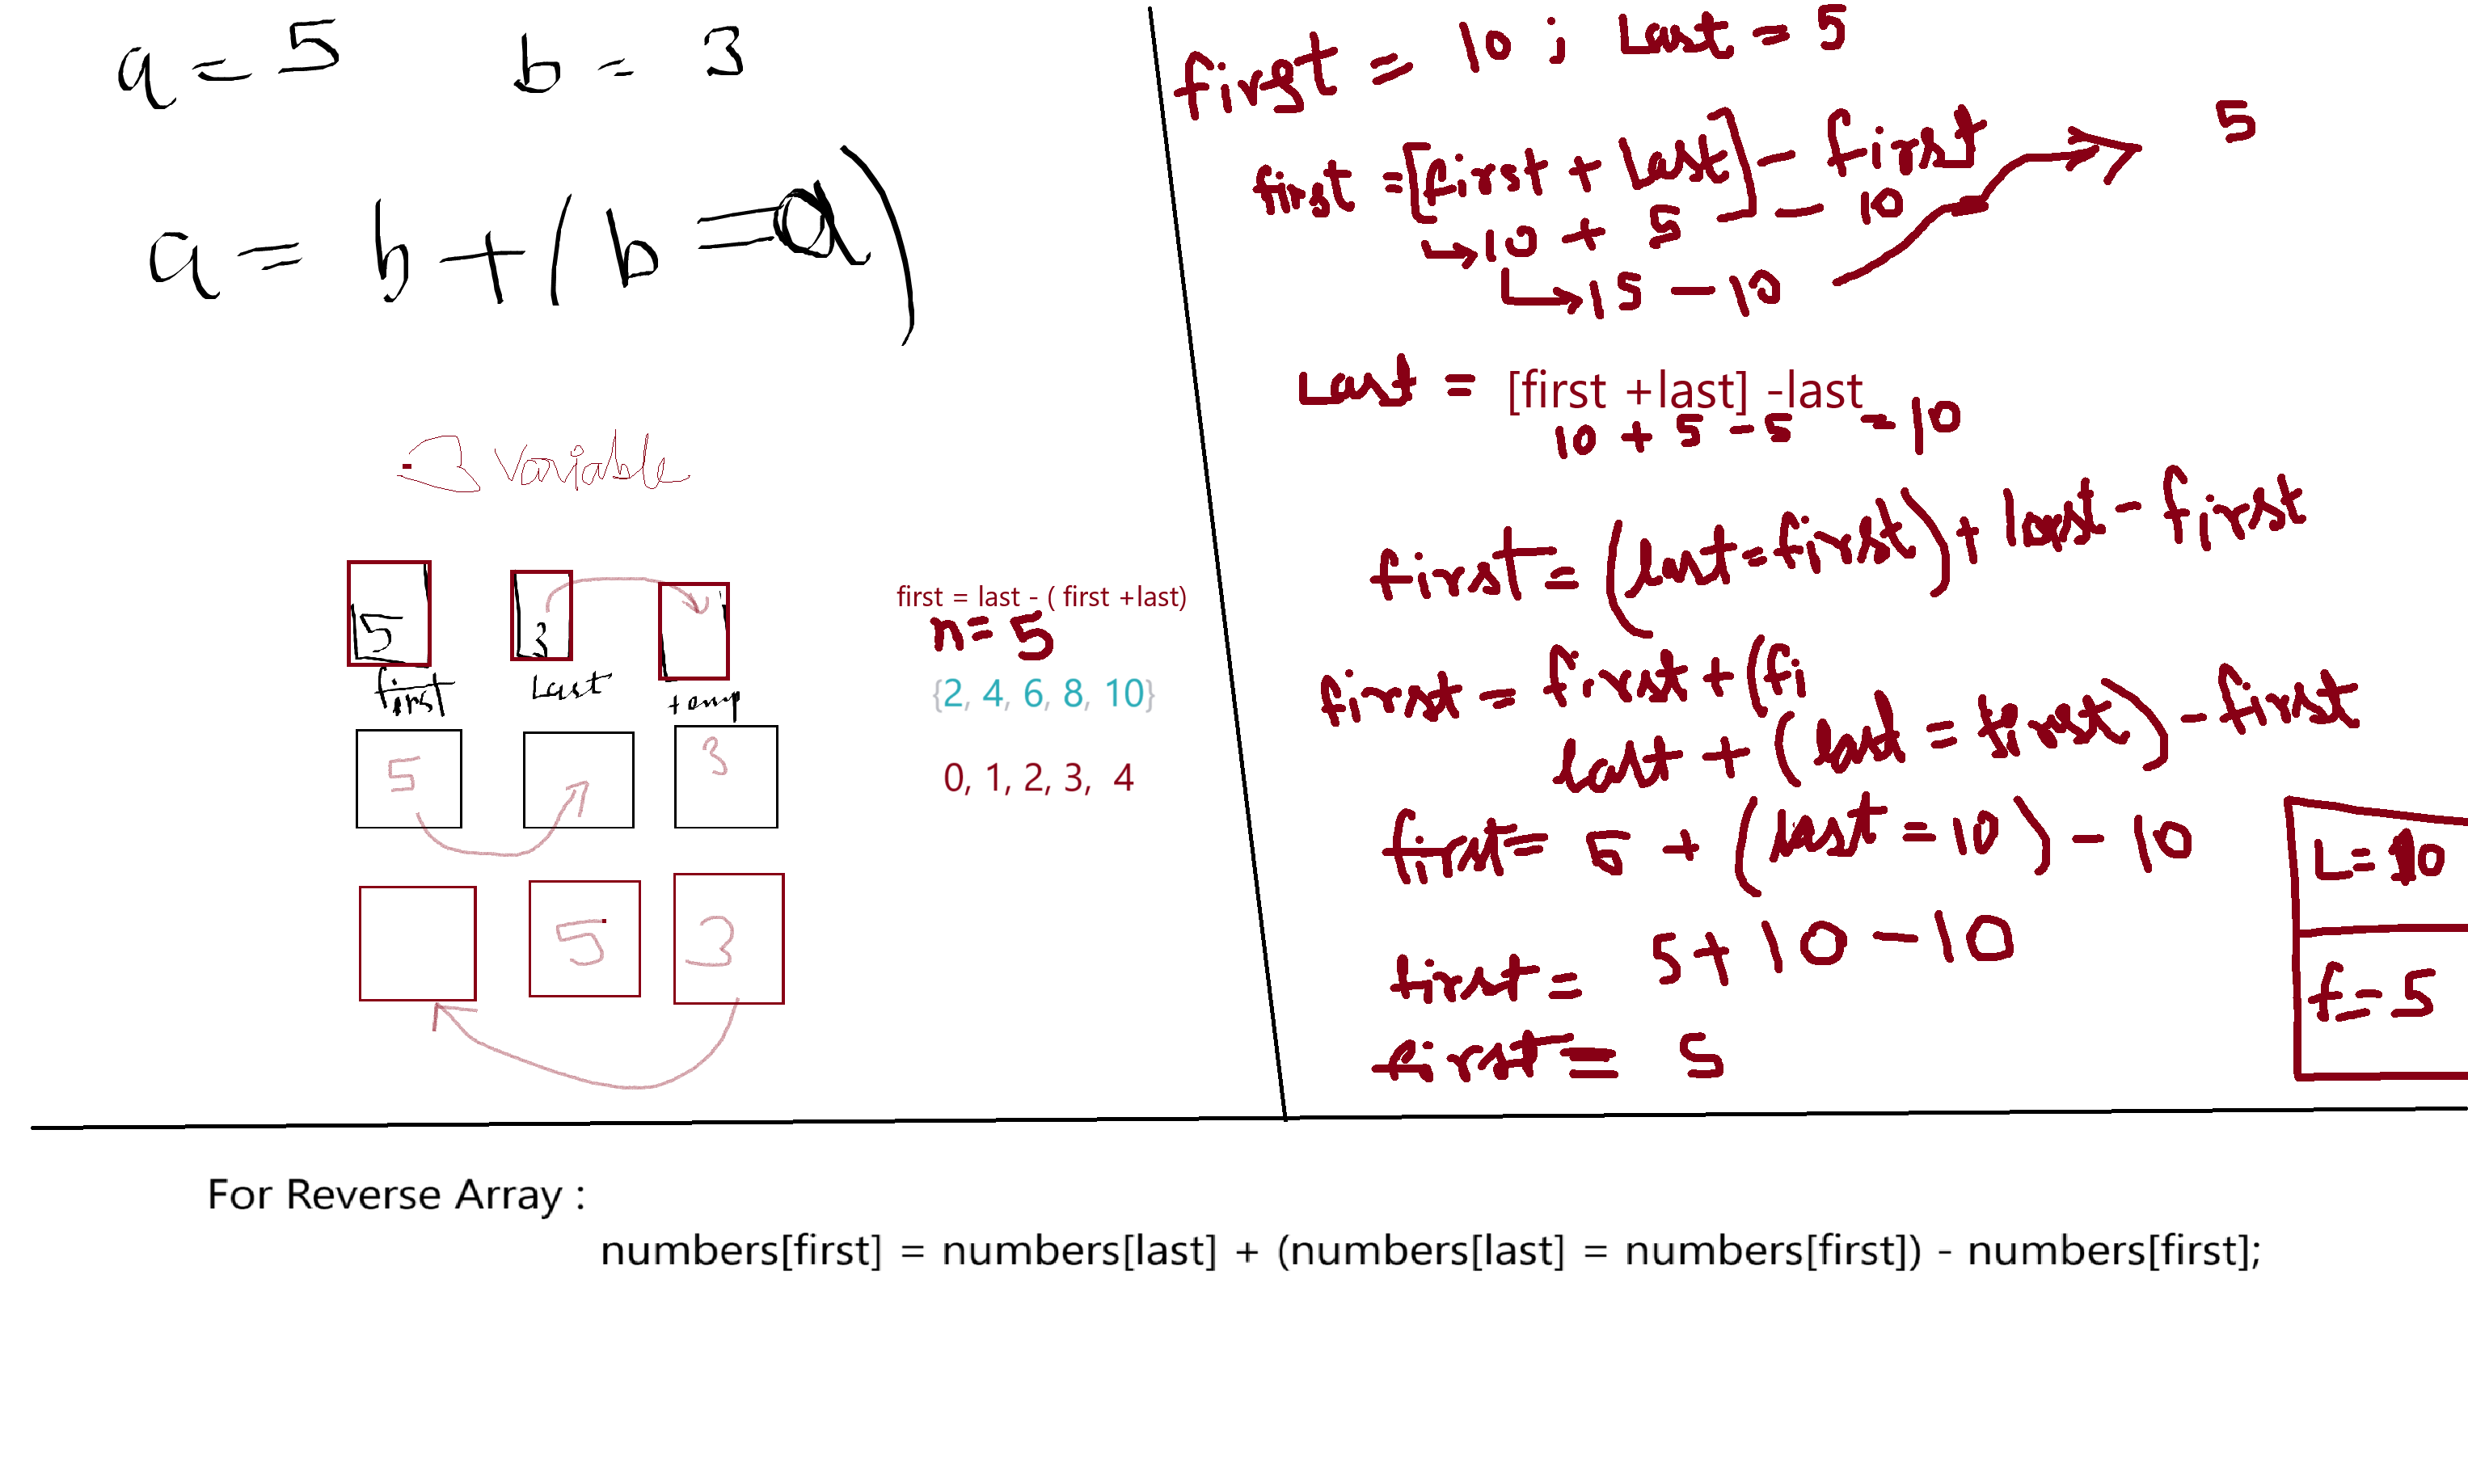 a = 5 b = 3
a = b + ( b = a )
3 variable
5 3
first Last temp
5 3
5 3
first = last - ( first +last)
n = 5
{2, 4, 6, 8, 10}
0, 1, 2, 3, 4
first = 10 ; Last = 5
first = [first + Last] - first 5
10 + 5 - 10
15 - 10
Last = [first +last] -last
10 + 5 - 5 = 10
first = (last = first) + last - first
first = first + (fi
last + (last = first) - first
first = 5 + (last = 10) - 10
first = 5 + 10 - 10
first = 5
L = 10
f = 5
For Reverse Array :
numbers[first] = numbers[last] + (numbers[last] = numbers[first]) - numbers[first];